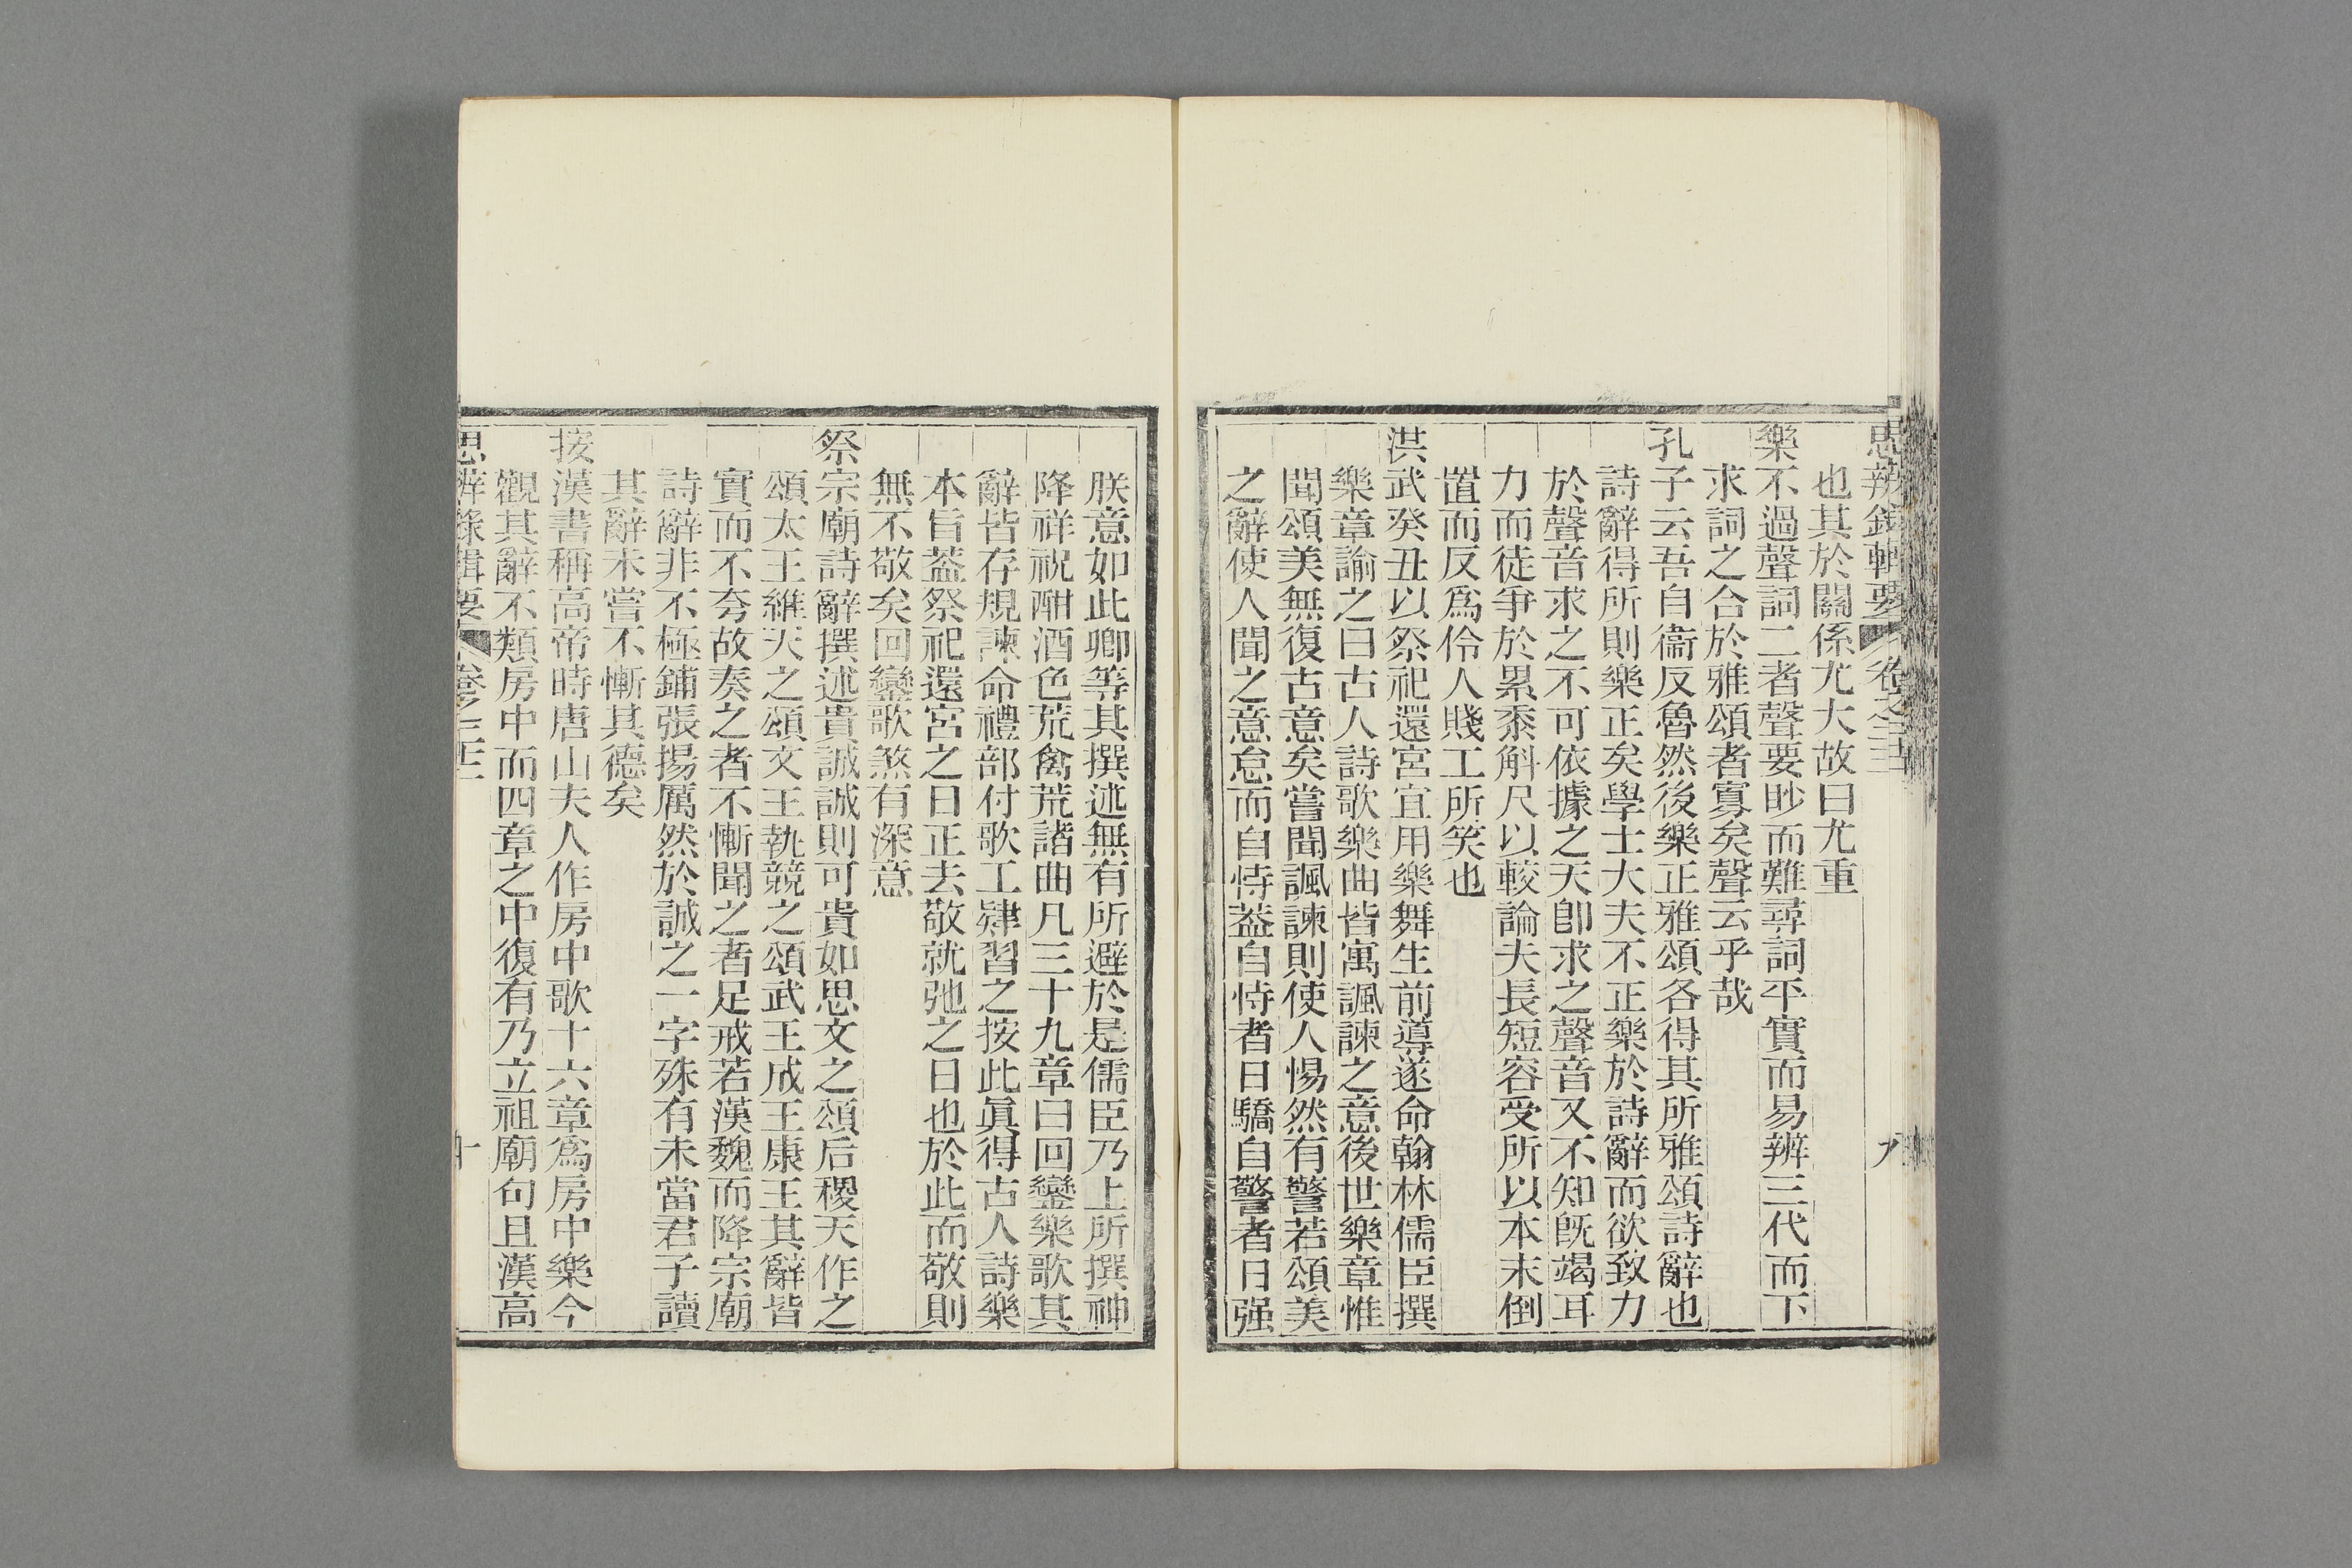 思辨錄輯要 卷之三五 九
也其於關係尤大故曰尤重
樂不過聲詞二者聲要眇而難尋詞平實而易辨三代而下
求詞之合於雅頌者寡矣聲云乎哉
孔子云吾自衞反魯然後樂正雅頌各得其所雅頌詩辭也
詩辭得所則樂正矣學士大夫不正樂於詩辭而欲致力
於聲音求之不可依據之天卽求之聲音又不知旣竭耳
力而徒爭於累黍斛尺以較論夫長短容受所以本末倒
置而反爲伶人賤工所笑也
洪武癸丑以祭祀還宮宜用樂舞生前導遂命翰林儒臣撰
樂章諭之曰古人詩歌樂曲皆寓諷諫之意後世樂章惟
聞頌美無復古意矣嘗聞諷諫則使人惕然有警若頌美
之辭使人聞之意怠而自恃葢自恃者日驕自警者日强
朕意如此卿等其撰述無有所避於是儒臣乃上所撰神
降祥祝酣酒色荒禽荒諸曲凡三十九章曰回鑾樂歌其
辭皆存規諫命禮部付歌工肄習之按此眞得古人詩樂
本旨葢祭祀還宮之日正去敬就弛之日也於此而敬則
無不敬矣回鑾歌煞有深意
祭宗廟詩辭撰述貴誠誠則可貴如思文之頌后稷天作之
頌太王維天之頌文王執競之頌武王成王康王其辭皆
實而不夸故奏之者不慚聞之者足戒若漢魏而降宗廟
詩辭非不極鋪張揚厲然於誠之一字殊有未當君子讀
其辭未嘗不慚其德矣
按漢書稱高帝時唐山夫人作房中歌十六章爲房中樂今
觀其辭不類房中而四章之中復有乃立祖廟句且漢高
思辨錄輯要 卷之三五 十